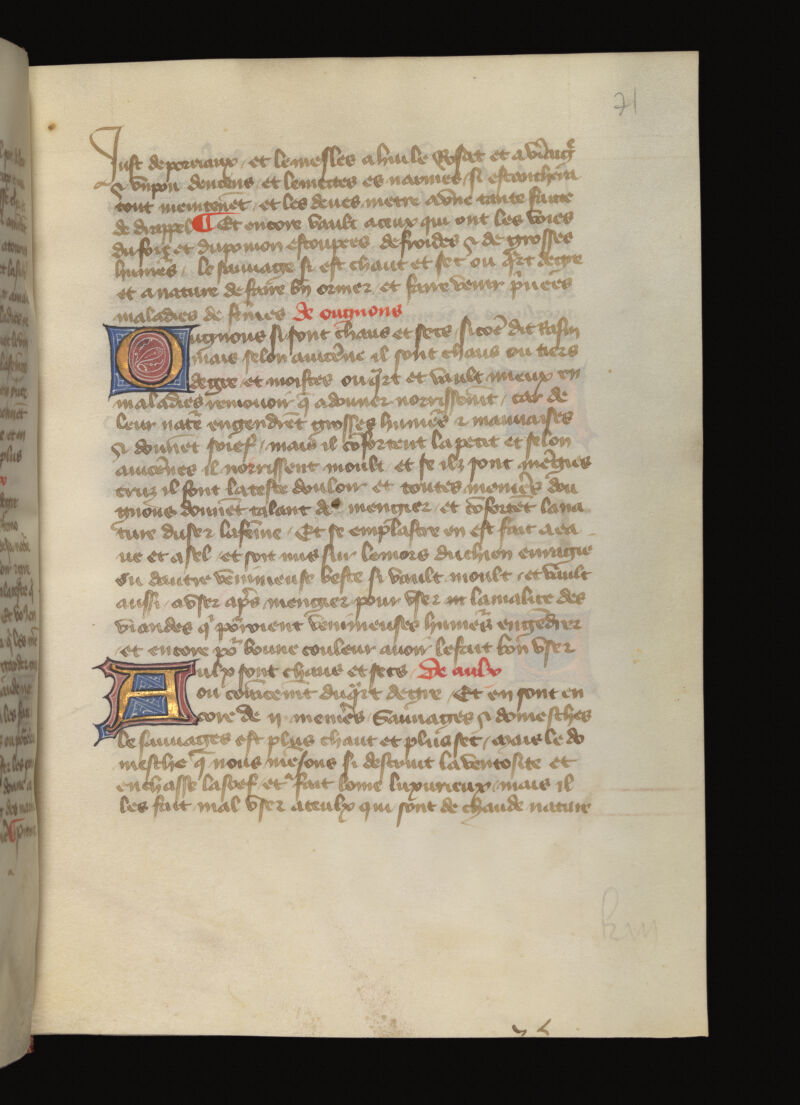 71
Just de porriaux et le mesles a huile Rosat et a vīaigr̄
et vn pou dencens et le metes es narines si estanchera
tout maintenēt et les deues metre a vne tante faite
de drappel ¶ Et encore vault a ceux qui ont les voies
du foye et du pomon estoupees de froides et de grosses
humeᵣs le sauuage si est chaut et sec ou q̄rt degre
et a nature de faire bn̄ oriner et faire venir p̄uees
maladies de fēmes De ougnons
Ougnons si sont chaus et secs si cōe dit Rasin
mais selon auicēne il sont chaus ou tiers
degre et moistes ou q̄rt et vault mieux en
maladies remouoir q̄ a donner norrissemt̄ car de
leur natē engendrēt grosses humeᵣs et mauuaises
et donnēt soief mais il cōfortent lapetit et selon
auicēnes il norrissent moult et se ilz sont mēgies
cruz il font la teste douloir et toutes menieᵣs dou
gnons donnēt talant de mengier et cōfortēt la na
ture duser la fēme Et se emplastre en est fait a ea
ue et a sel et soit mis sur le mors du chien enragie
Ou dautre venimeuse beste si vault moult et vault
aussi a vser ap̄s mengier pour vser la malice des
viandes q̄ por̄oient venimeuses humeᵣs engēdrer
et encore po᷑ bonne couleur auoir le fait bon vser
Aulx sont chaus et secs De aulx
ou cōmcemt̄ du q̄rt degre Et en sont en
core de ii menieᵣs Sauuages et domesches
le sauuages est plus chaut et plus sec Mais le do
mesche q̄ nous mēions si destruit la ventosite et
enchasse la soef et fait lome luxurieux mais il
les fait mal vser a ceulx qui sont de chaude nature